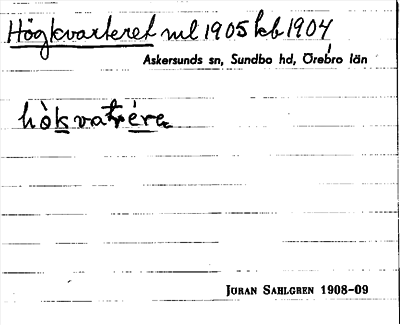 Högkvarteret ml 1905 kb 1904
Askersunds sn, Sundbo hd, Örebro län
hòkvatére
JURAN SAHLGREN 1908-09